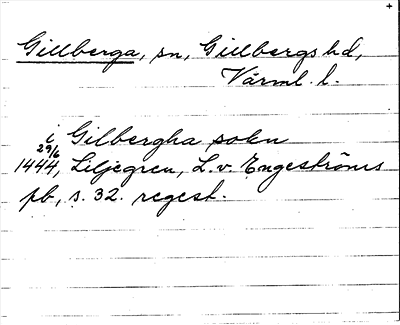 Gillberga, sn, Gillbergs hd,
Värml. l.
i Gilbergha sokn
29/6
1444, Liljegren, L. v. Engeströms
pb, s. 32. regest.